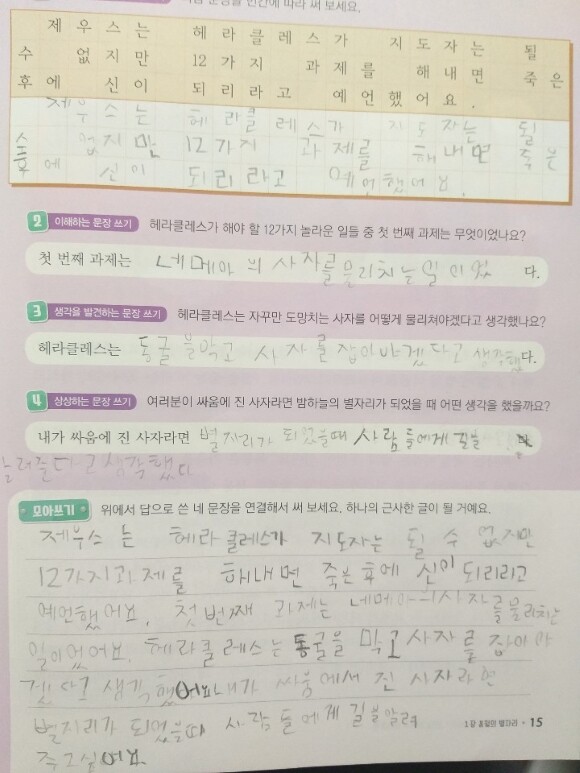 문장을 빈칸에 따라 써 보세요.
제우스는 헤라클레스가 지도자는 될
수 없지만 12가지 과제를 해내면 죽은
후에 신이 되리라고 예언했어요.
제우스는 헤라클레스가 지도자는 될
수 없지만 12가지 과제를 해내면 죽은
후에 신이 되리라고 예언했어요.
2 이해하는 문장 쓰기 헤라클레스가 해야 할 12가지 놀라운 일들 중 첫 번째 과제는 무엇이었나요?
첫 번째 과제는 네메아의 사자를 물리치는 일이었 다.
3 생각을 발견하는 문장 쓰기 헤라클레스는 자꾸만 도망치는 사자를 어떻게 물리쳐야겠다고 생각했나요?
헤라클레스는 동굴을 막고 사자를 잡아야겠다고 생각했다.
4 상상하는 문장 쓰기 여러분이 싸움에 진 사자라면 밤하늘의 별자리가 되었을 때 어떤 생각을 했을까요?
내가 싸움에 진 사자라면 별자리가 되었을때 사람들에게 길을
알려준다고 생각했다
모아쓰기 위에서 답으로 쓴 네 문장을 연결해서 써 보세요. 하나의 근사한 글이 될 거예요.
제우스는 헤라클레스가 지도자는 될 수 없지만
12가지과제를 해내면 죽은후에 신이되리라고
예언했어요. 첫번째 과제는 네메아의사자를물리치는
일이었어요. 헤라클레스는동굴을 막고사자를 잡아야
겠다고 생각했어요내가 싸움에서 진 사자라면
별자리가 되었을때 사람들에게 길을알려
주고싶어요
1장 봄철의 별자리 • 15